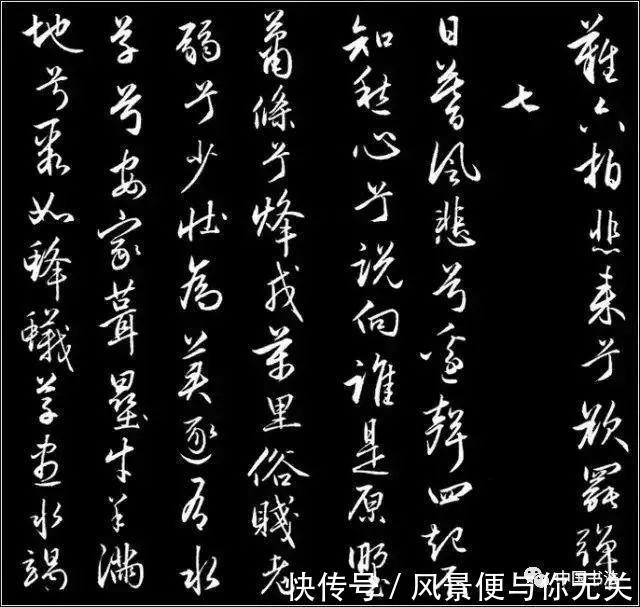 難六拍悲來兮欲罷彈
七
日暮風悲兮邊聲四起不
知愁心兮說向誰是原野
蕭條兮烽戍萬里俗賤老
弱兮少壯為美逐有水
草兮安家葺壘牛羊滿
地兮聚如蜂蟻草盡水竭
中国书法
快传号 / 风景便与你无关